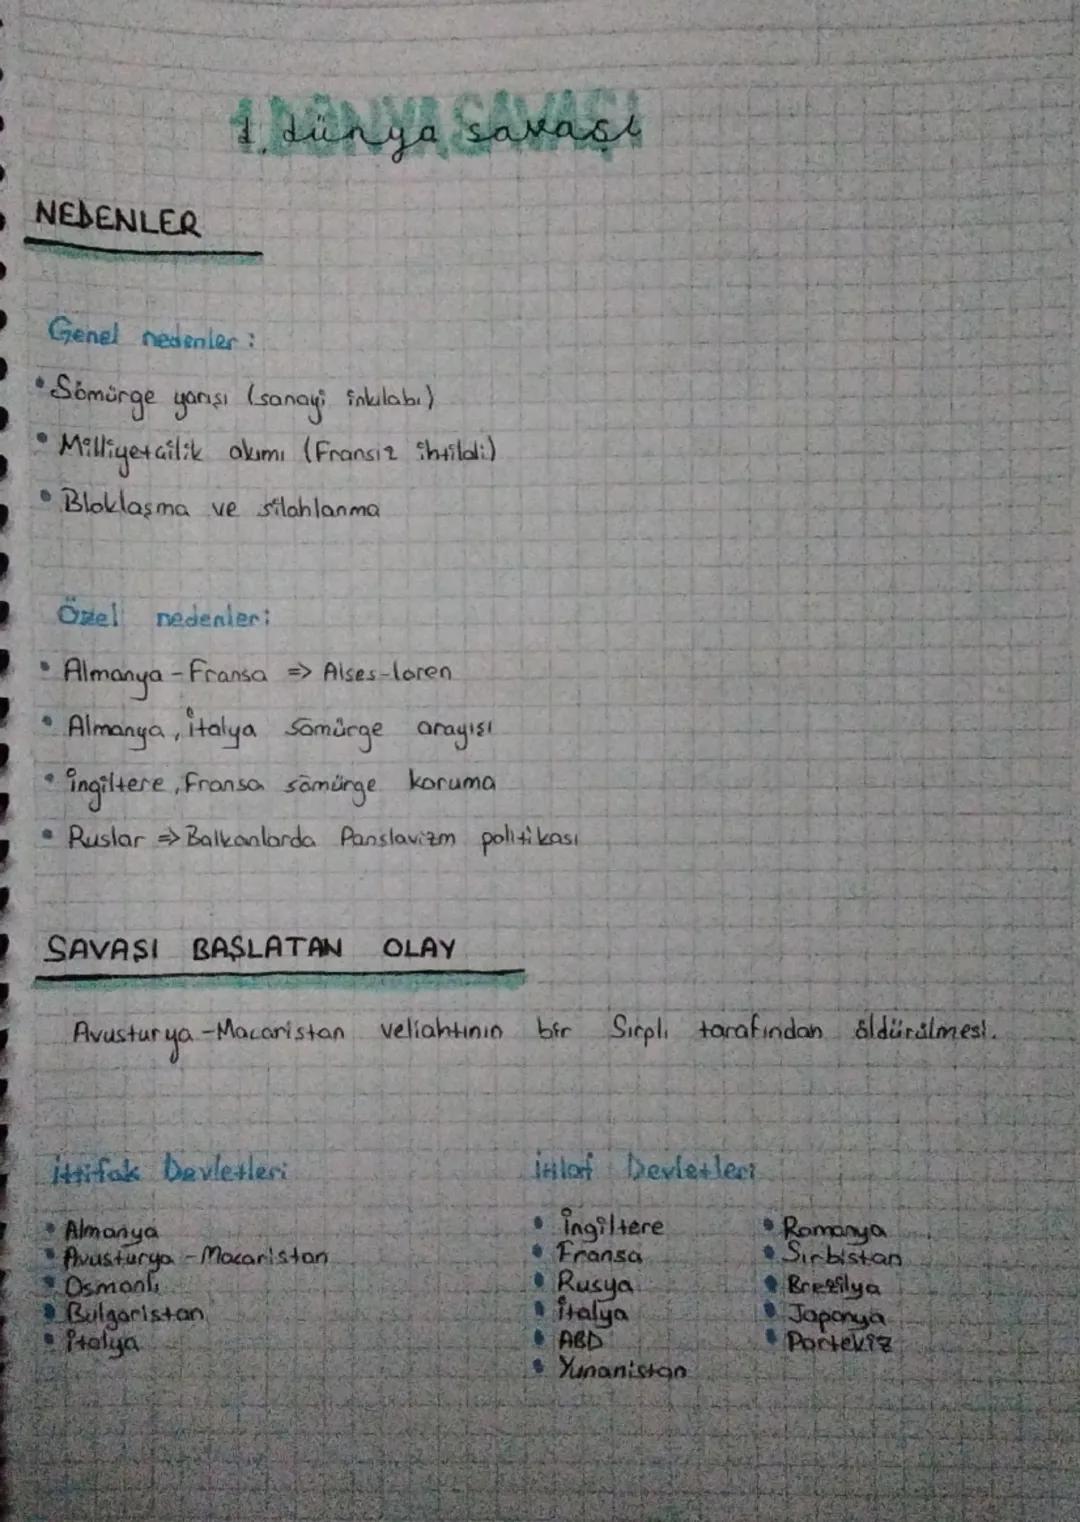 1. DÜNYA SAVAŞI
1. dünya savaşı
NEDENLER
Genel nedenler:
• Sömürge yarışı (sanayi inkılabı)
• Milliyetçilik akımı (Fransız ihtilali)
• Bloklaşma ve silahlanma
Özel nedenler:
• Almanya - Fransa => Alses-loren
• Almanya, italya sömürge arayışı
• ingiltere, Fransa sömürge koruma
• Ruslar => Balkanlarda Panslavizm politikası
SAVAŞI BAŞLATAN OLAY
Avusturya - Macaristan veliahtının bir Sırplı tarafından öldürülmesi.
ittifak Devletleri
• Almanya
• Avusturya - Macaristan
• Osmanlı
• Bulgaristan
• italya
itilaf Devletleri
• ingiltere
• Fransa
• Rusya
• italya
• ABD
• Yunanistan
• Romanya
• Sırbistan
• Brezilya
• Japonya
• Portekiz